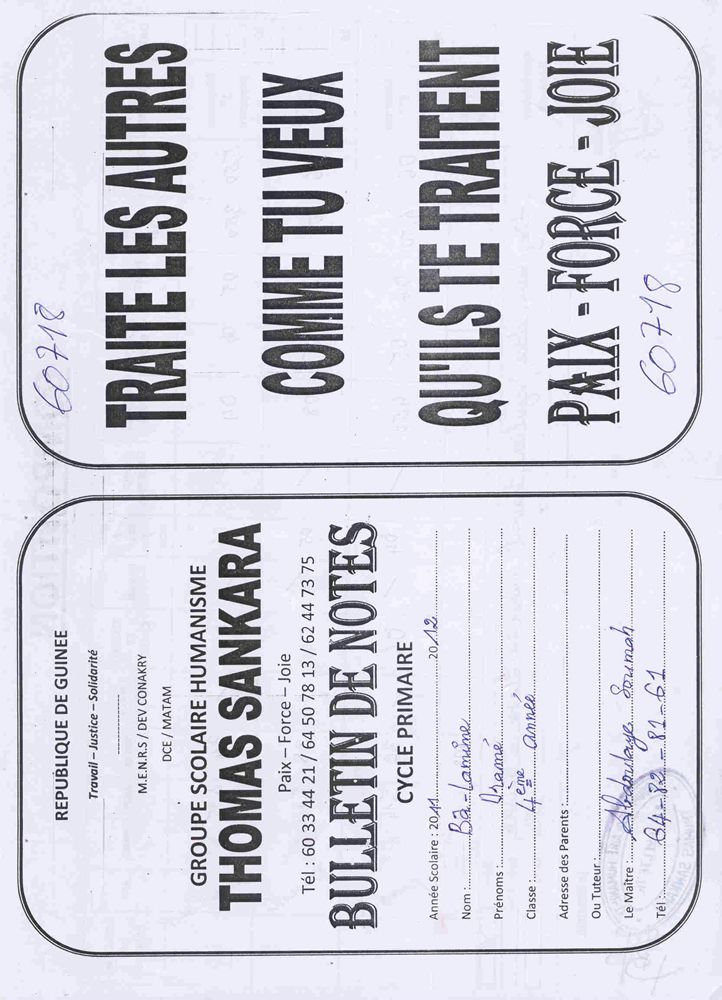 REPUBLIQUE DE GUINEE
Travail – Justice – Solidarité
M.E.N.R.S / DEV CONAKRY
DCE / MATAM
GROUPE SCOLAIRE HUMANISME
THOMAS SANKARA
Paix – Force – Joie
Tél : 60 33 44 21 / 64 50 78 13 / 62 44 73 75
BULLETIN DE NOTES
CYCLE PRIMAIRE
Année Scolaire : 2011 2012
Nom : Bâ-Lamine
Prénoms : Dramé
Classe : 4ème année
Adresse des Parents :
Ou Tuteur :
Le Maître : Abdoulaye Soumah
Tél : 64-82-81-61
60718
TRAITE LES AUTRES
COMME TU VEUX
QU'ILS TE TRAITENT
PAIX - FORCE - JOIE
60718